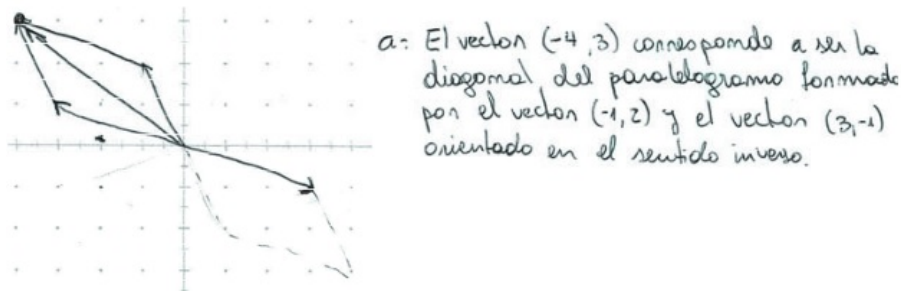 a: El vector (-4, 3) corresponde a ser la
diagonal del paralelogramo formado
por el vector (-1, 2) y el vector (3, -1)
orientado en el sentido inverso.